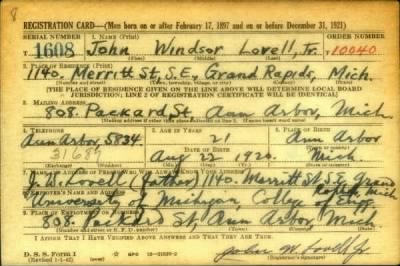 REGISTRATION CARD—(Men born on or after February 17, 1897 and on or before December 31, 1921)
SERIAL NUMBER 1. NAME (Print) ORDER NUMBER
T 1608 John Windsor Lovell, Jr. 10040
(First) (Middle) (Last)
2. PLACE OF RESIDENCE (Print)
1140. Merritt St, S.E., Grand Rapids, Mich.
(Number and street) (Town, township, village, or city) (County) (State)
[THE PLACE OF RESIDENCE GIVEN ON THE LINE ABOVE WILL DETERMINE LOCAL BOARD
JURISDICTION; LINE 2 OF REGISTRATION CERTIFICATE WILL BE IDENTICAL]
3. MAILING ADDRESS
808. Packard St Ann Arbor, Mich.
4. TELEPHONE 5. AGE IN YEARS 6. PLACE OF BIRTH
Ann Arbor, 5834 21 Ann Arbor
31689 DATE OF BIRTH
Aug 22 1920. Mich
7. NAME AND ADDRESS OF PERSON WHO WILL ALWAYS KNOW YOUR ADDRESS
J. W. Lovell (father) 1140. Merritt St. S.E. Grand
8. EMPLOYER'S NAME AND ADDRESS
University of Michigan College of Eng.
9. PLACE OF EMPLOYMENT OR BUSINESS
808. Packard St, Ann Arbor, Mich
I AFFIRM THAT I HAVE VERIFIED ABOVE ANSWERS AND THAT THEY ARE TRUE.
D. S. S. Form 1
(Revised 1-1-42) (over) John W Lovell Jr